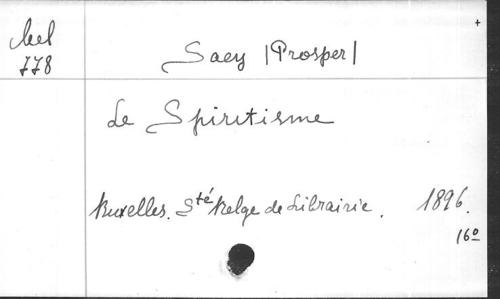 Bel
778
Saey (Prosper)
Le Spiritisme
Bruxelles. Sté belge de Librairie. 1896.
16º